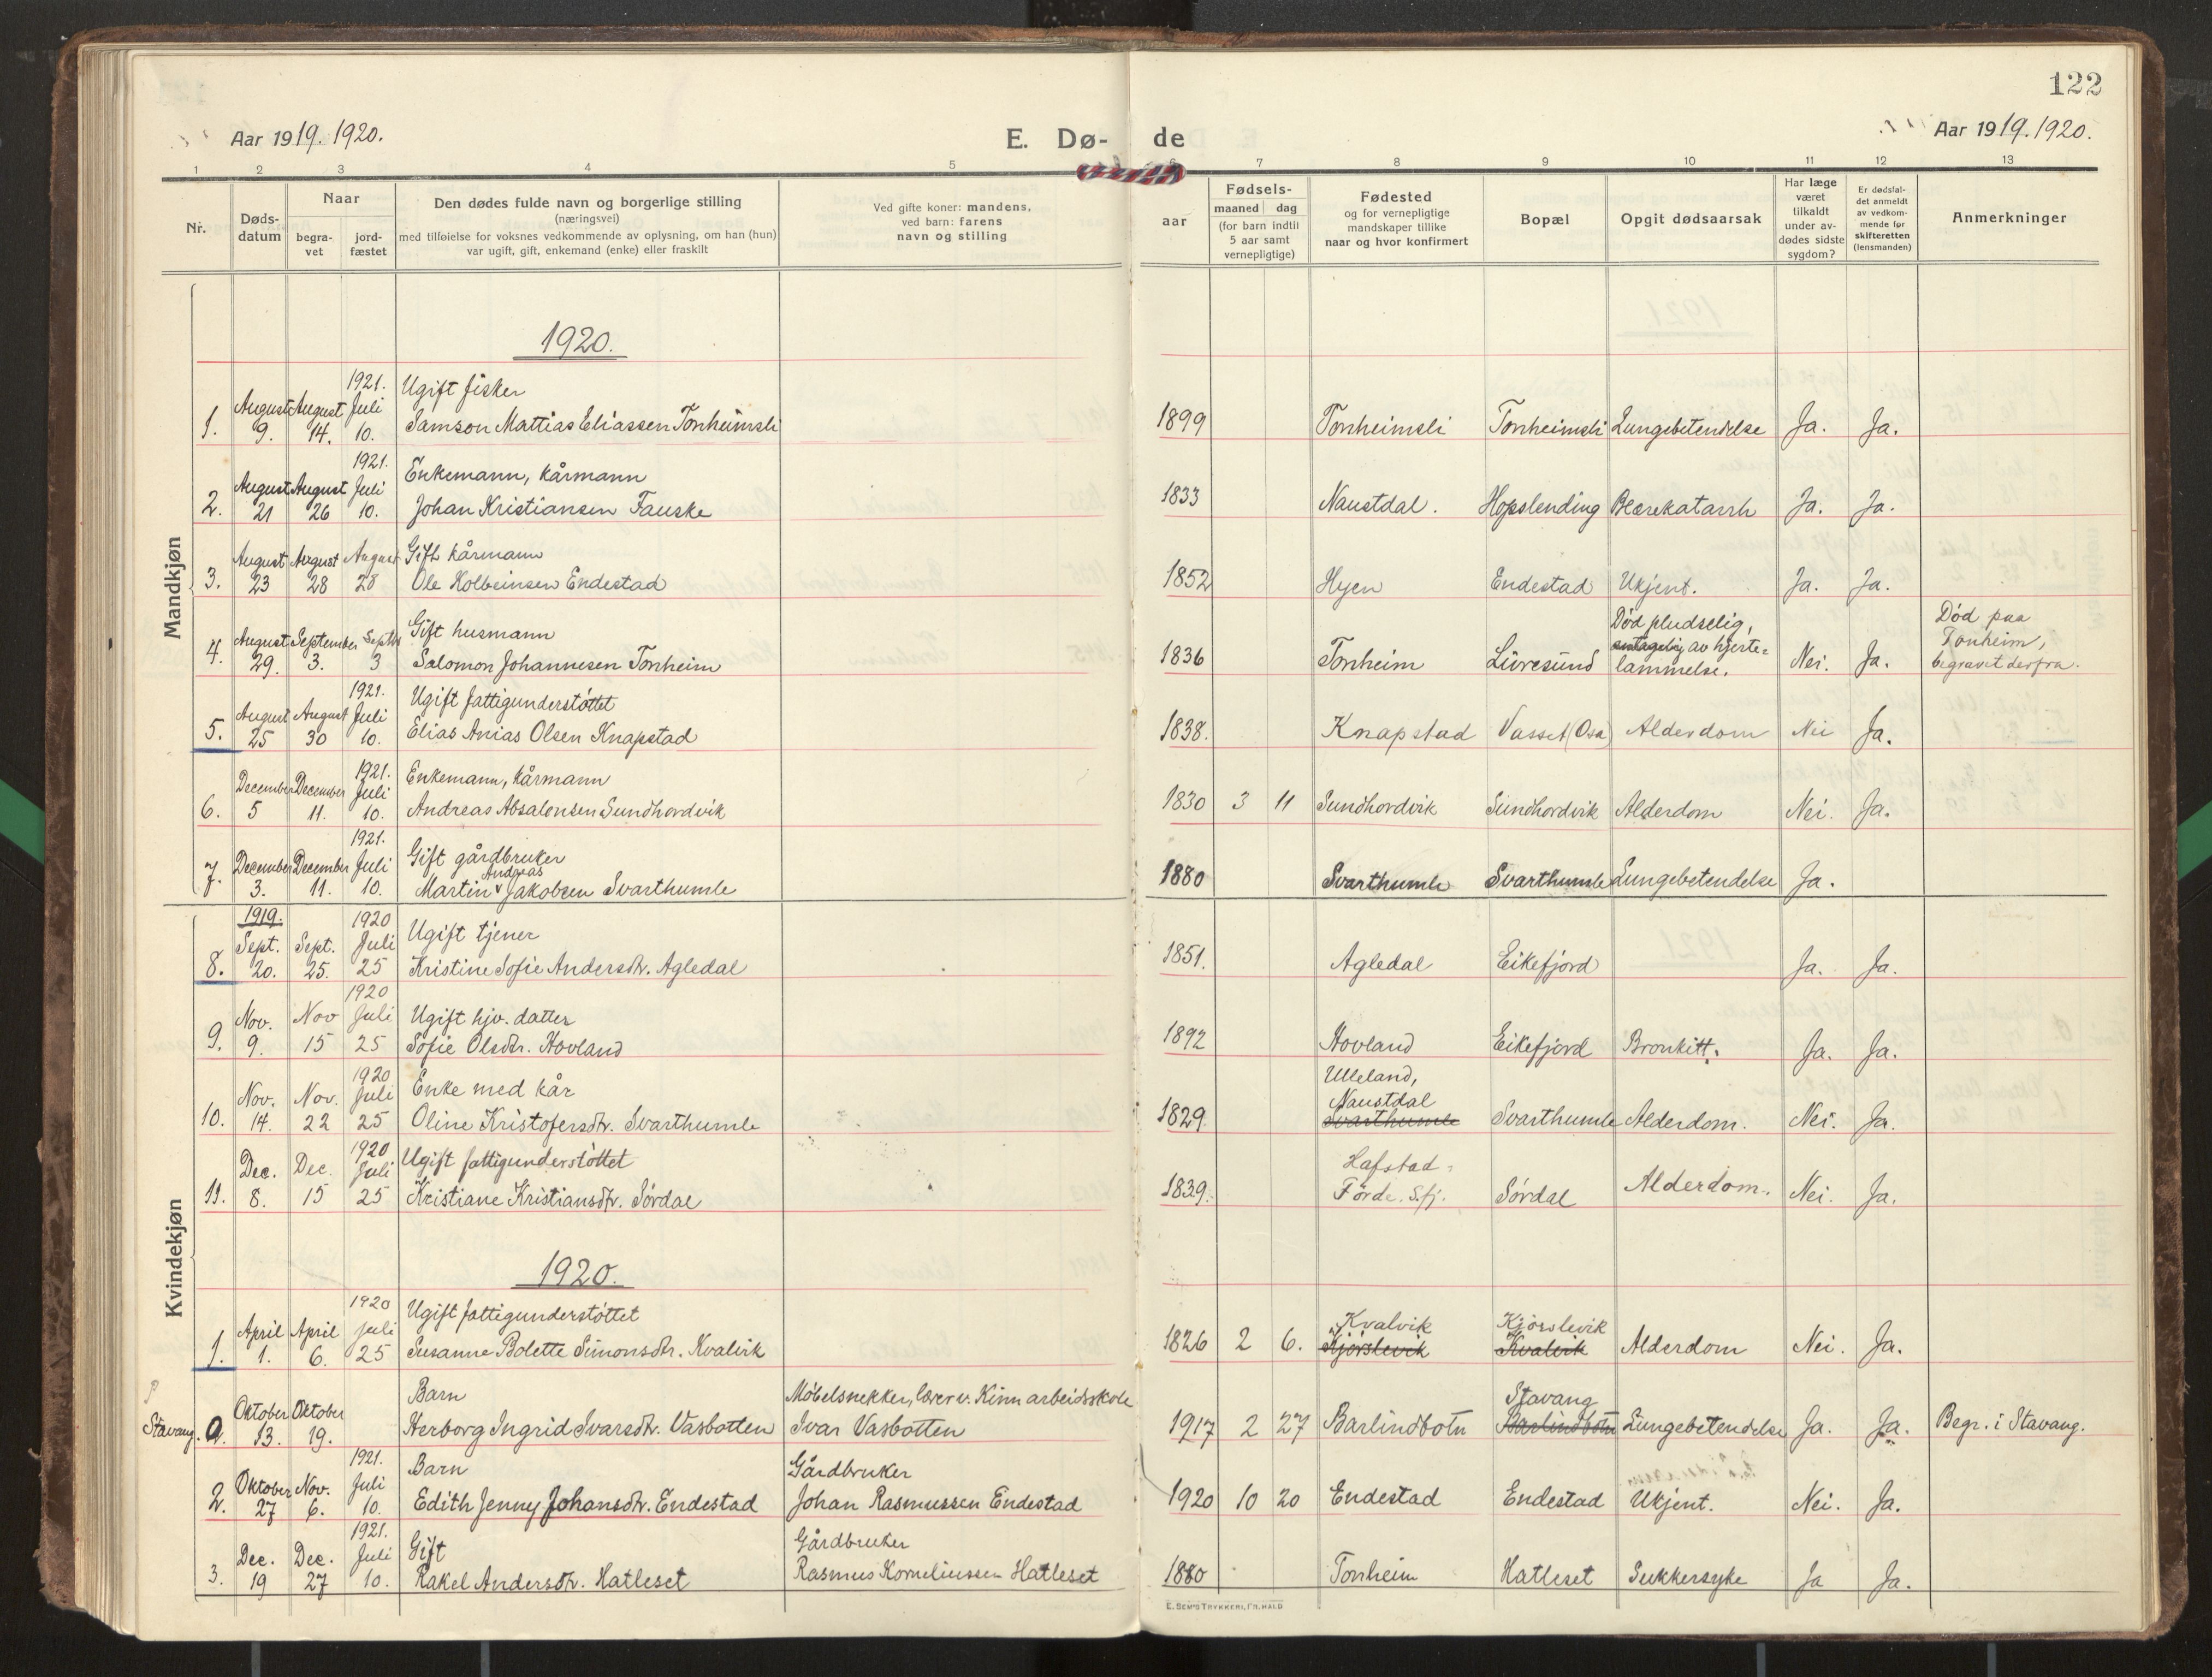 122
Aar 1919. 1920.
E. Dø- de
Aar 1919. 1920.
1 2 3 4 5 6 7 8 9 10 11 12 13
Nr.
Døds-
datum
Naar
begra-
vet
jord-
fæstet
Den dødes fulde navn og borgerlige stilling
(næringsvei)
med tilføielse for voksnes vedkommende av oplysning, om han (hun)
var ugift, gift, enkemand (enke) eller fraskilt
Ved gifte koner: mandens,
ved barn: farens
navn og stilling
aar
Fødsels-
maaned dag
(for barn indtil
5 aar samt
vernepligtige)
Fødested
og for vernepligtige
mandskaper tillike
naar og hvor konfirmert
Bopæl
Opgit dødsaarsak
Har læge
været
tilkaldt
under av-
dødes sidste
sygdom?
Er dødsfal-
det anmeldt
av vedkom-
mende før
skifteretten
(lensmanden)
Anmerkninger
Mandkjøn
1920.
1921. Ugift fisker
August August Juli
1. 9. 14. 10. Samson Mattias Eliassen Tonheimsli 1899 Tonheimsli Tonheimsli Lungebetendelse Ja. Ja.
1921. Enkemann, kårmann
August August Juli
2. 21 26 10. Johan Kristiansen Fauske 1833 Naustdal. Hopslending Blærekatarrh Ja. Ja.
August August August Gift kårmann
3. 23 28 28 Ole Kolbeinsen Endestad 1852 Hyen Endestad Ukjent. Ja. Ja.
August September Septbr Gift husmann Død pludselig, Død paa
4. 29. 3. 3 Salomon Johannesen Tonheim 1836 Tonheim Livresund antagelig av hjerte- Nei. Ja. Tonheim,
lammelse. begravet derfra.
1921. Ugift fattigunderstøttet
August August Juli
5. 25 30 10. Elias Anias Olsen Knapstad 1838. Knapstad Vasset (Osa) Alderdom Nei Ja.
1921. Enkemann, kårmann
December December Juli
6. 5 11. 10. Andreas Absalonsen Sundhordvik 1830 3 11 Sundhordvik Sundhordvik Alderdom Nei. Ja.
1921. Gift gårdbruker
December December Juli Andreas
7. 3. 11. 10. Martin Jakobsen Svarthumle 1880 Svarthumle Svarthumle Lungebetendelse Ja.
Kvindekjøn
1919. 1920 Ugift tjener
Sept. Sept. Juli
8. 20. 25. 25 Kristine Sofie Andersdtr. Agledal 1851. Agledal Eikefjord Ja. Ja.
1920
Nov. Nov Juli Ugift hjv. datter
9. 9. 15 25 Sofie Olsdtr. Hovland 1892 Hovland Eikefjord Bronkitt. Ja. Ja.
1920 Enke med kår Ulleland,
Nov. Nov. Juli Naustdal
10. 14. 22 25 Oline Kristofersdtr. Svarthumle 1829. Svarthumle Svarthumle Alderdom. Nei. Ja.
1920 Ugift fattigunderstøttet Hafstad
Dec. Dec. Juli
11. 8. 15 25 Kristiane Kristiansdtr. Sørdal 1839. Førde. S.fj. Sørdal Alderdom. Nei. Ja.
1920.
1920 Ugift fattigunderstøttet Kvalvik Kjørslevik
April April juli
1. 1. 6. 25 Susanne Bolette Simonsdtr. Kvalvik 1826 2 6. Kjørslevik Kvalvik Alderdom Nei. Ja.
Oktober Oktober Barn Møbelsnekker, lærer v. Kinn arbeidsskole Stavang
Stavang. 0. 13. 19. Herborg Ingrid Ivarsdtr. Vasbotten Ivar Vasbotten 1917 2 27 Barlindbotn Barlindbotn Lungebetendelse Ja. Ja. Begr. i Stavang.
1921. Barn Gårdbruker
Oktober Nov. Juli
2. 27 6. 10. Edith Jenny Johansdtr. Endestad Johan Rasmussen Endestad 1920 10 20 Endestad Endestad Ukjent. Nei. Ja.
1921. Gift Gårdbruker
Dec. Dec. Juli
3. 19 27 10. Rakel Andersdtr. Hatleset Rasmus Korneliussen Hatleset 1880 Tonheim Hatleset Sukkersyke Ja Ja.
E. SEM'S TRYKKERI, FR. HALD